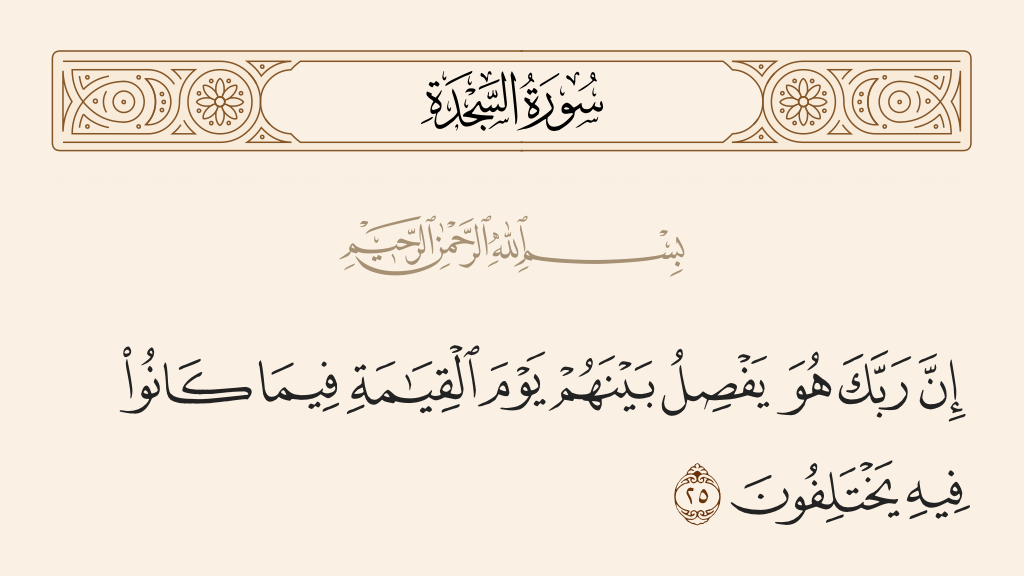 سُورَةُ السَّجْدَةِ
بِسْمِ ٱللَّهِ ٱلرَّحْمَٰنِ ٱلرَّحِيمِ
إِنَّ رَبَّكَ هُوَ يَفْصِلُ بَيْنَهُمْ يَوْمَ ٱلْقِيَـٰمَةِ فِيمَا كَانُوا۟
فِيهِ يَخْتَلِفُونَ ٢٥